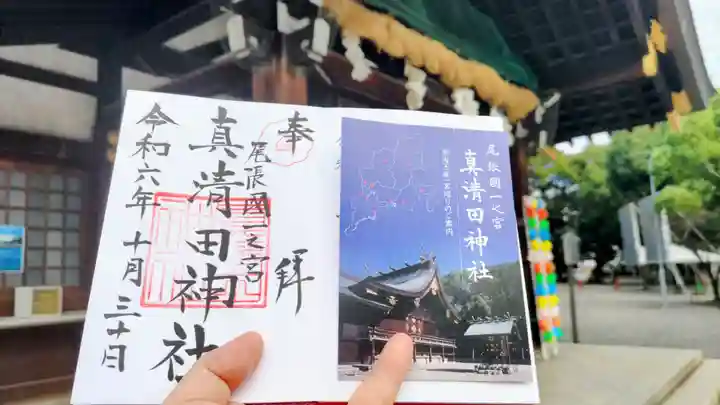 奉拝
尾張國一之宮
真清田神社
令和六年十月三十日
尾張國一之宮
真清田神社